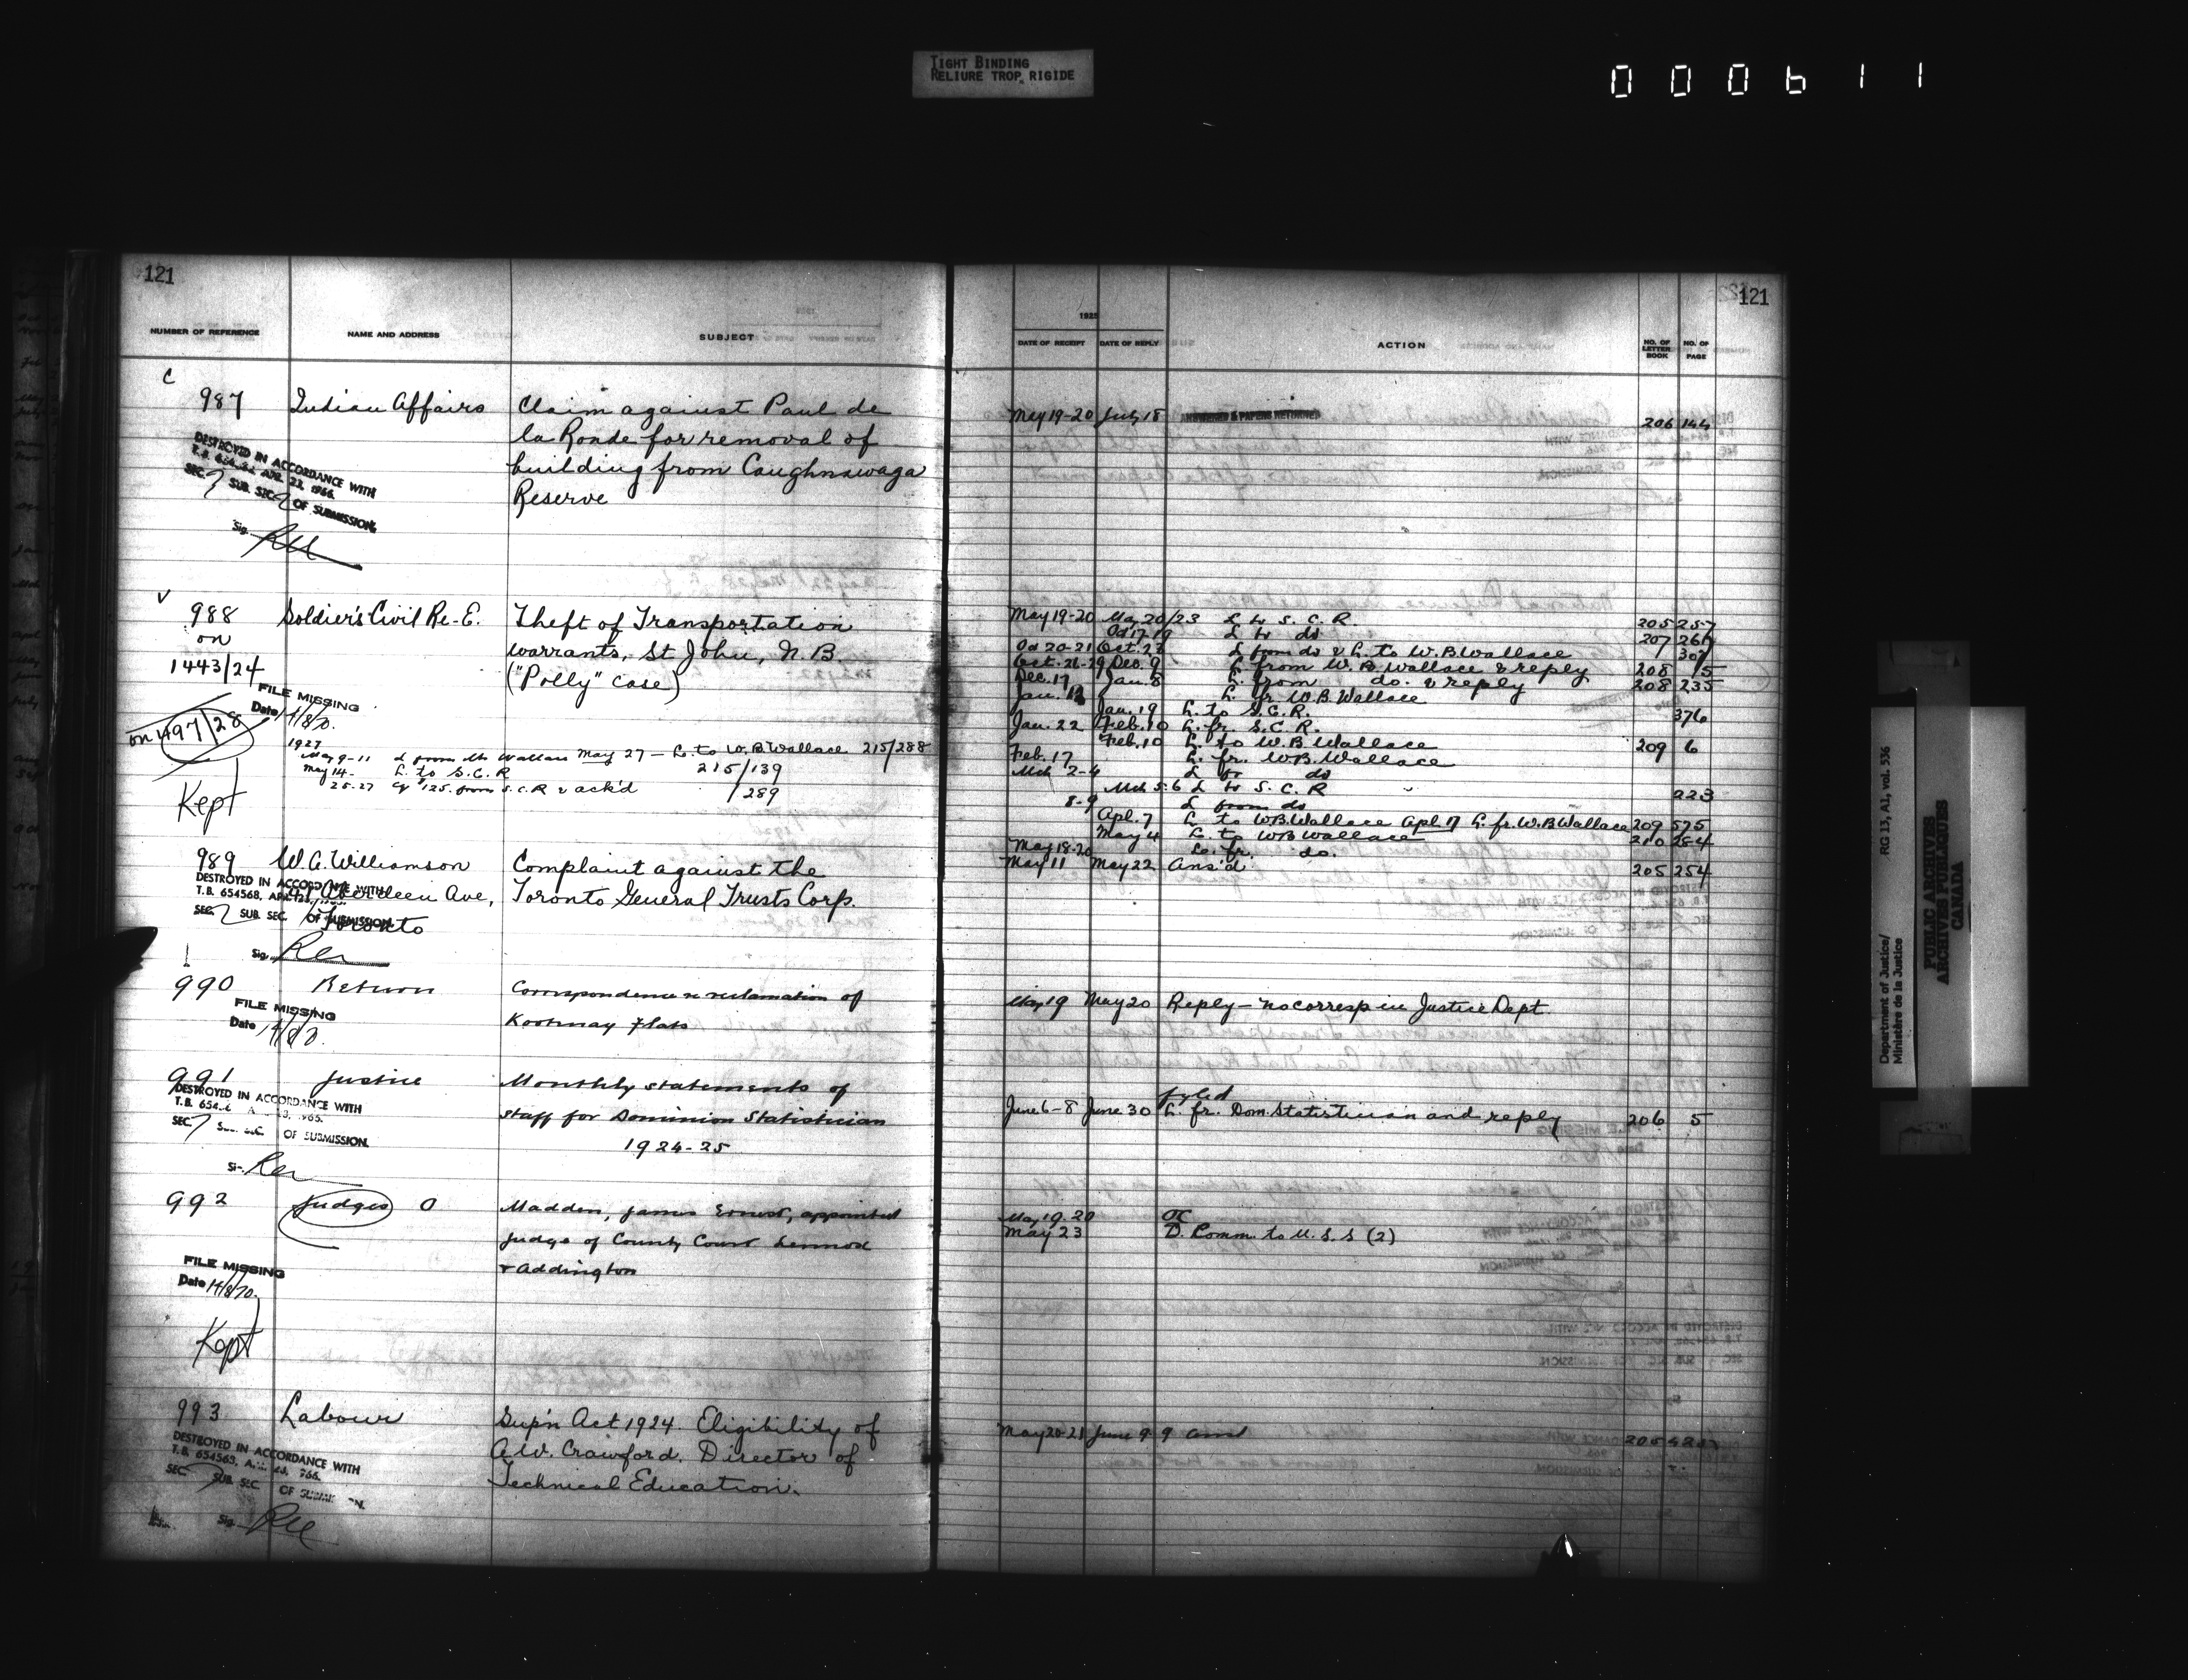 TIGHT BINDING
RELIURE TROP RIGIDE
000611
121
NUMBER OF REFERENCE NAME AND ADDRESS SUBJECT
C
987 Indian Affairs Claim against Paul de
la Ronde for removal of
building from Caughnawaga
Reserve
DESTROYED IN ACCORDANCE WITH
APR. 23, 1966.
SEC. 7 SUB. SEC. 2 OF SUBMISSION.
Sig.
V
988 Soldier's Civil Re-E. Theft of Transportation
on warrants, St John, N.B.
1443/24 ("Polly" case)
FILE MISSING
Date 14/8/70.
on 1497/28
1927
May 9-11 L from Mr Wallace May 27 - L. to W.B. Wallace 215/288
May 14- L. to S.C.R 215/139
25-27 Cq $125. from S.C.R & ack'd /289
Kept
989 W.G. Williamson Complaint against the
Aberdeen Ave, Toronto General Trusts Corp.
Toronto
DESTROYED IN ACCORDANCE WITH
T.B. 654568, APR. 23,
SEC. 7 SUB. SEC. OF SUBMISSION.
Sig.
990 Return Correspondence re reclamation of
Kootenay Flats
FILE MISSING
Date 14/8/70.
991 Justice Monthly statements of
staff for Dominion Statistician
1924-25
DESTROYED IN ACCORDANCE WITH
SEC. 7 OF SUBMISSION.
992 Judges O Madden, James Ernest, appointed
Judge of County Court Lennox
& Addington
FILE MISSING
Date 14/8/70.
Kept
993 Labour Sup'n Act 1924. Eligibility of
A.W. Crawford. Director of
Technical Education.
DESTROYED IN ACCORDANCE WITH
T.B. 654563,
SEC. 7 SUB. SEC.
Sig.
121
1925
DATE OF RECEIPT DATE OF REPLY ACTION NO. OF LETTER BOOK NO. OF PAGE
May 19-20 July 18 ANSWERED & PAPERS RETURNED 206 144
May 19-20 May 20/23 L to S.C.R. 205 257
Oct 17-19 L to do 207 261
Oct 20-21 Oct. 27 L from do & L. to W.B. Wallace 307
Oct. 26-29 Dec. 9 L from W.B. Wallace & reply 208 15
Dec. 17 Jan. 8 L. from do. & reply 208 235
Jan. 12 L. fr W.B. Wallace
Jan. 19 L. to S.C.R. 376
Jan. 22 Feb. 10 L. fr. S.C.R.
Feb. 10 L. to W.B. Wallace 209 6
Feb. 17 L. fr. W.B. Wallace
Mch 2-4 L fr do
Mch 5-6 L to S.C.R 223
8-9 L from do
Apl. 7 L. to W.B. Wallace Apl. 17 L. fr. W.B. Wallace 209 575
May 4 L. to W.B. Wallace 210 284
May 18-20 L. fr. do.
May 11 May 22 Ans'd 205 254
May 19 May 20 Reply - no corresp in Justice Dept.
fyled
June 6-8 June 30 L. fr. Dom. Statistician and reply 206 5
May 19-20 OC
May 23 D. Comm. to U.S.S (2)
May 20-21 June 9 9 Ansd 205
RG 13, A1, vol. 536
Department of Justice/
Ministère de la Justice
PUBLIC ARCHIVES
ARCHIVES PUBLIQUES
CANADA